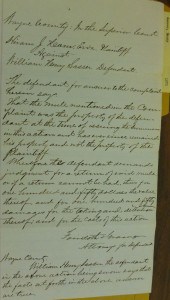 Wayne County. In the Superior Court
Hiram J. Sears, Live Plaintiff
Against
William Henry Sasser Defendant
The defendant, for answer to the complaint
herein, says
That the mule mentioned in the Com-
plaint was the property of the defen-
dant at the time of
in this action and has ever since remained
his property and not the property of the
Plaintiff
Wherefore the defendant demands
judgment for a return of said mule
or if a return cannot be had, then for
one hundred and fifty dollars the value
thereof and for one hundred and fifty
damages for the taking and detention
thereof, and for the costs of the action
Attorneys for defendant
Wayne County
William Henry Sasser the defendant
in the above action being sworn says that
the facts set forth in the above answer
are true